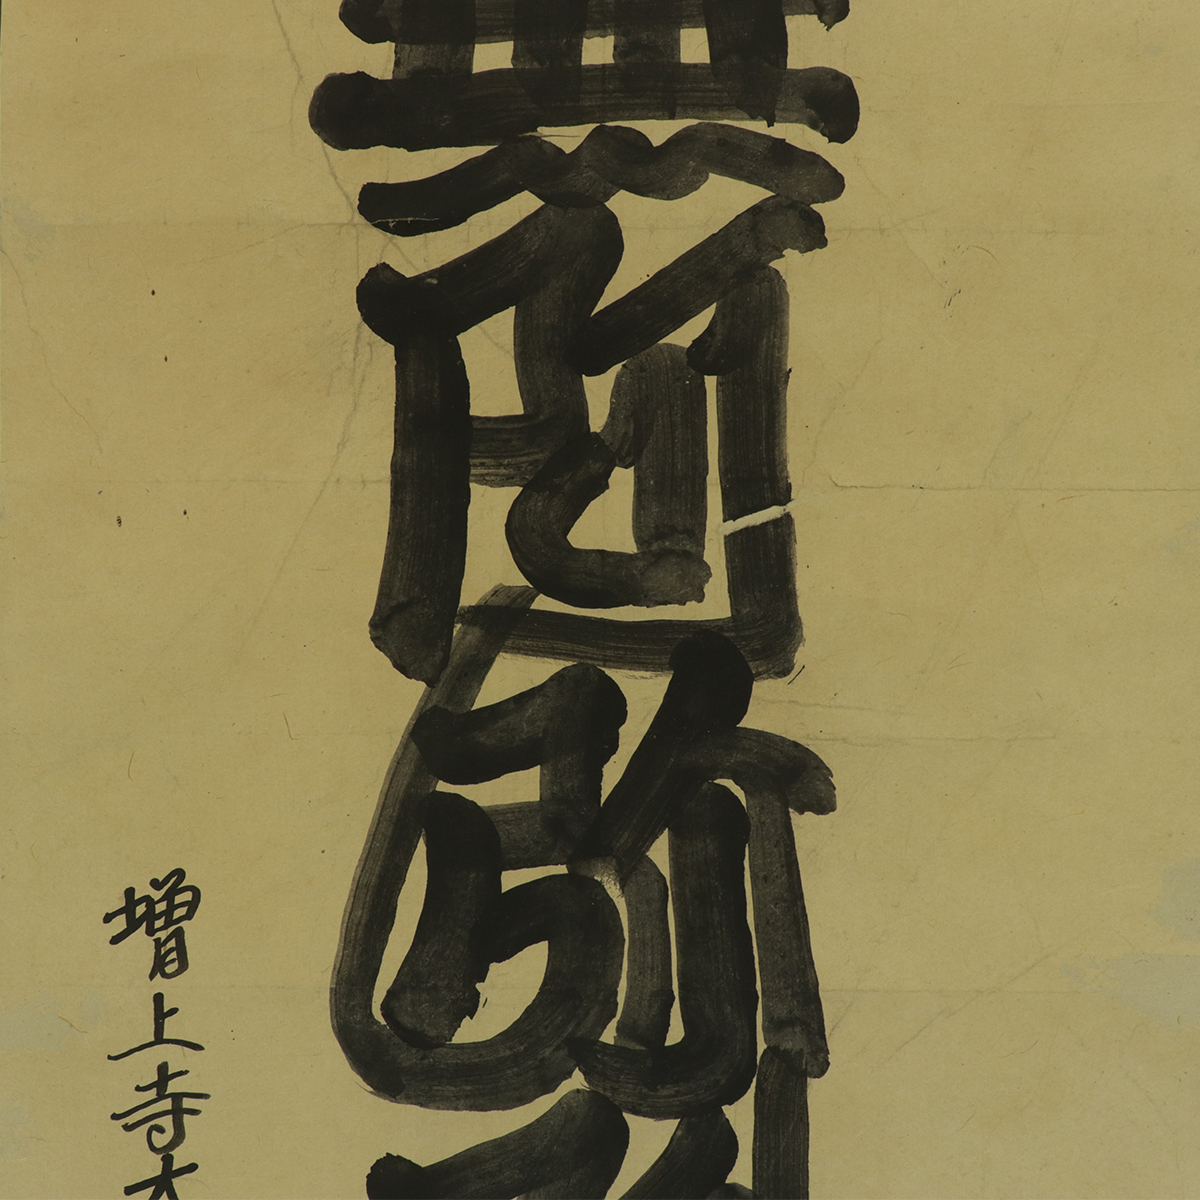 無阿弥陀
増上寺大